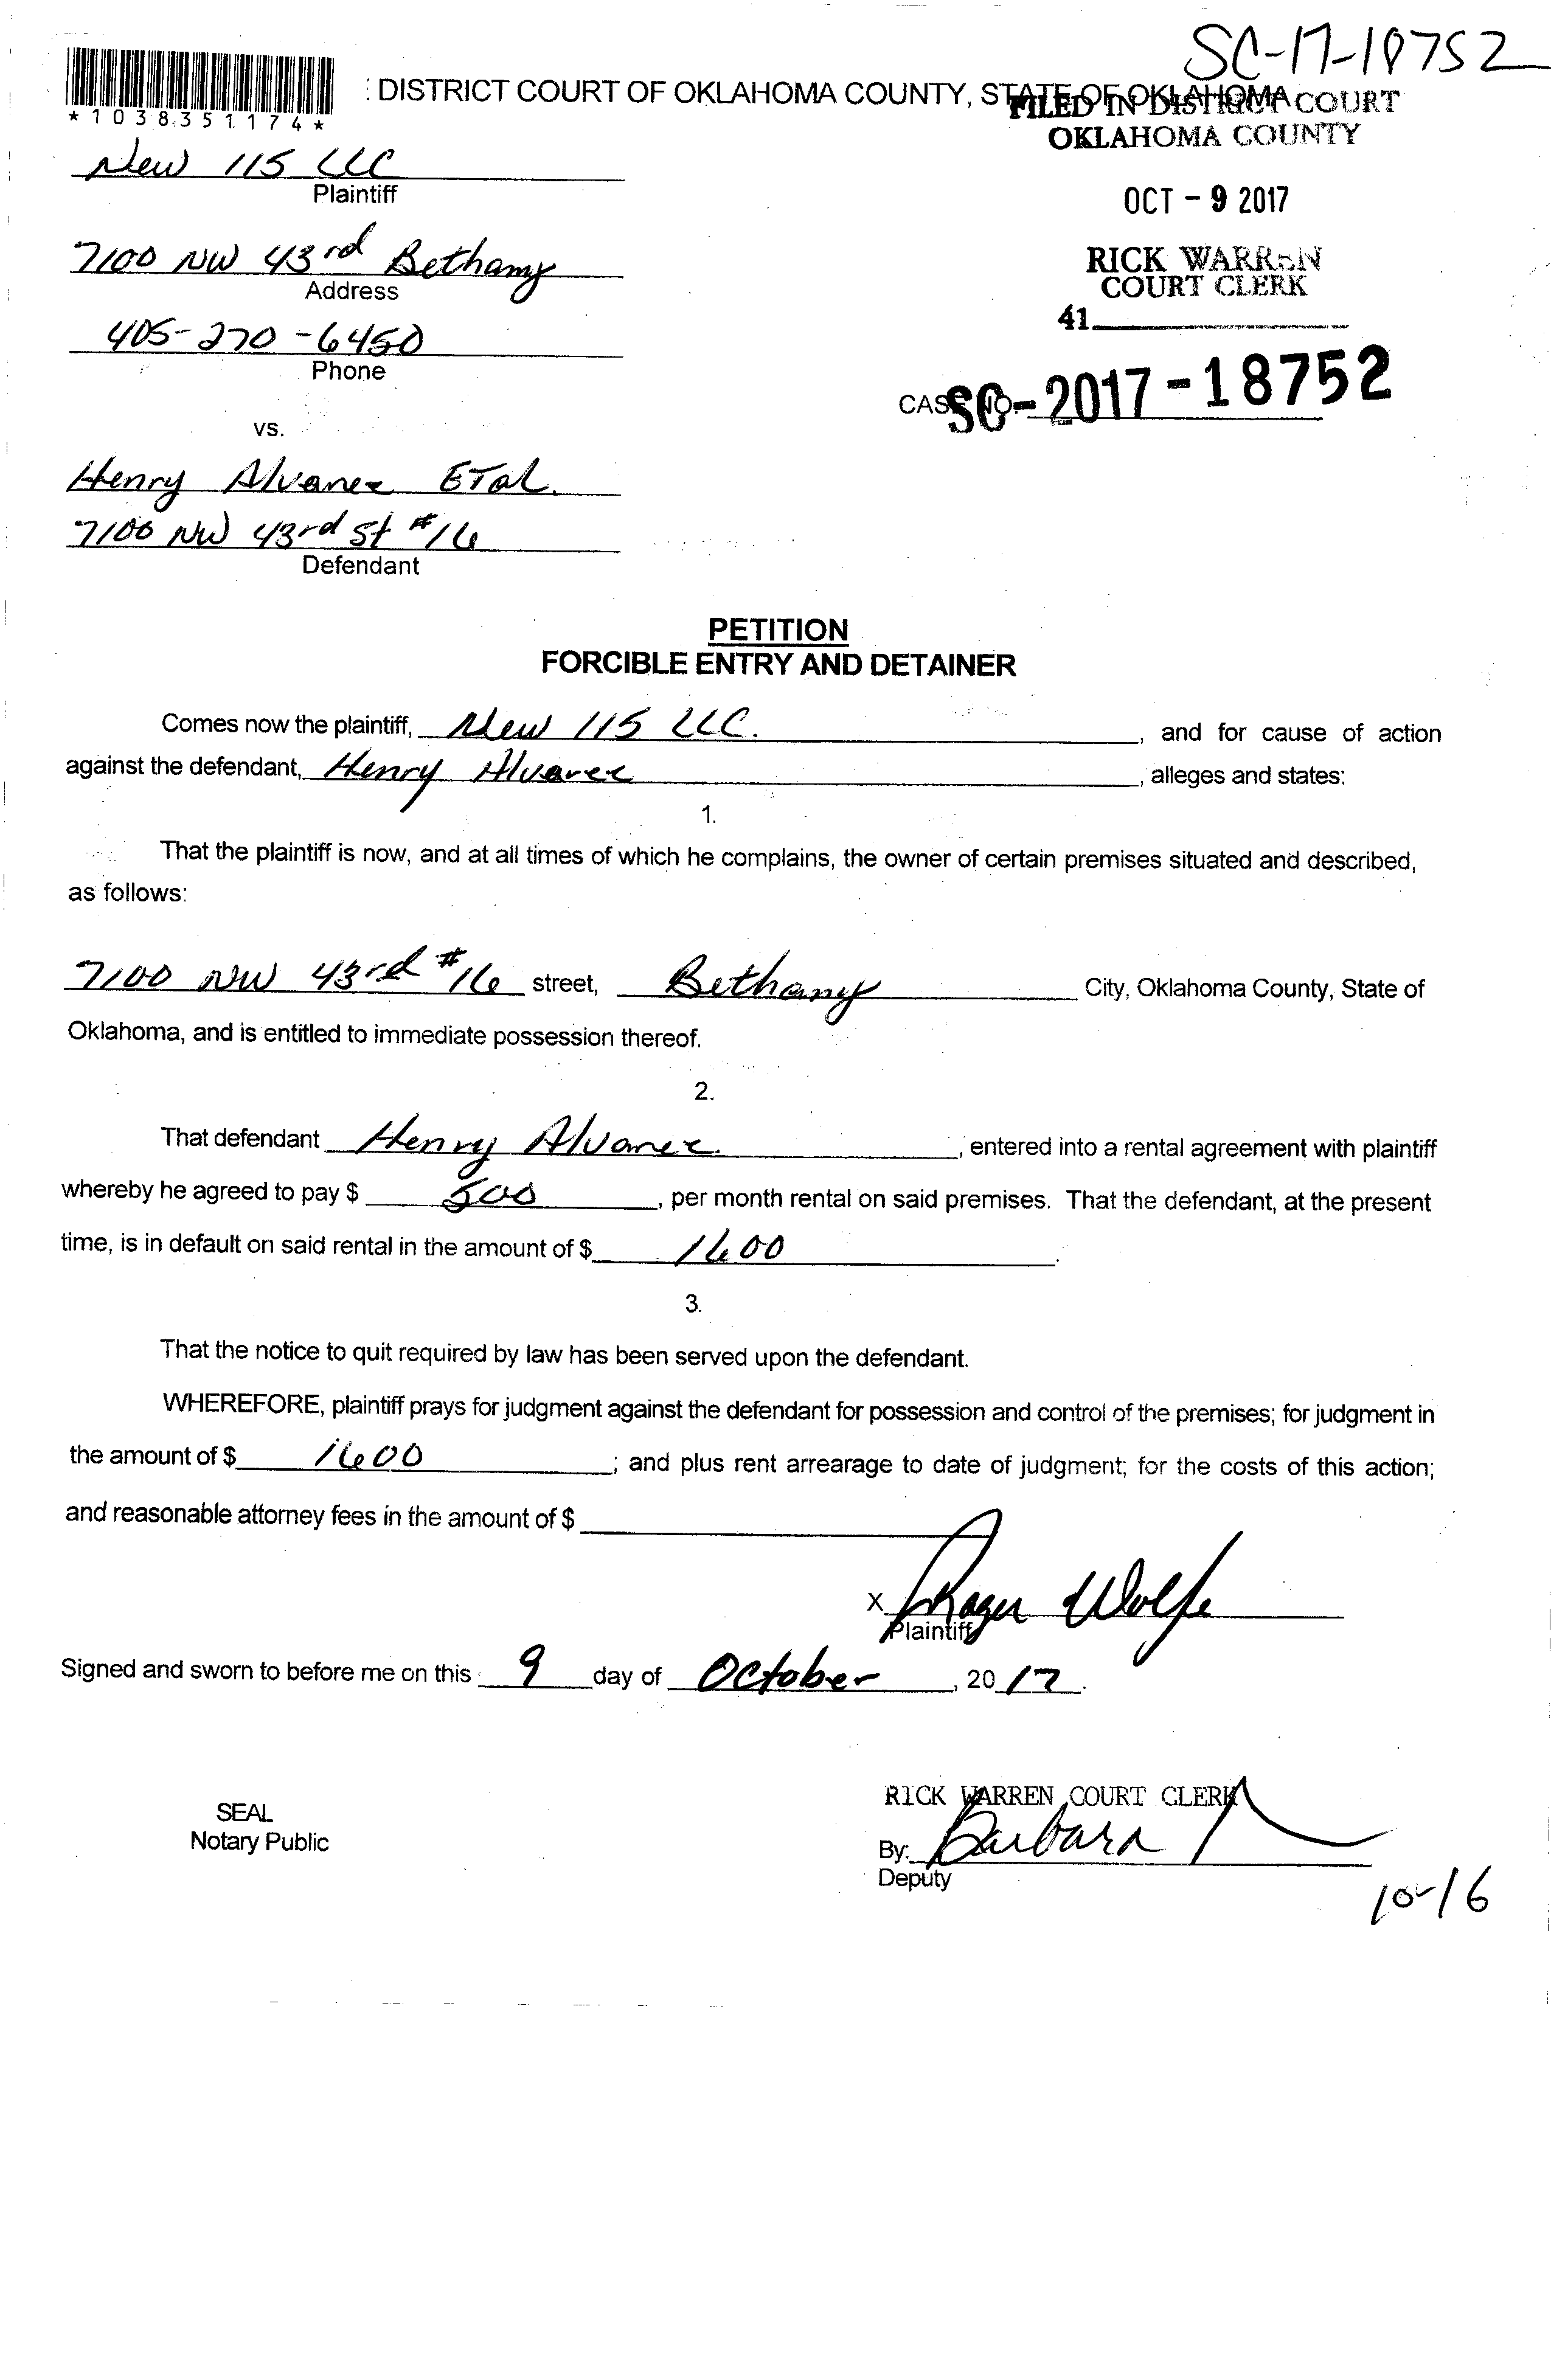 SC-17-18752
*1038351174*
: DISTRICT COURT OF OKLAHOMA COUNTY, STATE OF OKLAHOMA
FILED IN DISTRICT COURT
OKLAHOMA COUNTY
New 115 LLC
Plaintiff
OCT - 9 2017
7100 NW 43rd Bethany
Address
RICK WARREN
COURT CLERK
41
405-270-6450
Phone
CASE NO. SC-2017-18752
vs.
Henry Alvarez ETal.
7100 NW 43rd St #16
Defendant
PETITION
FORCIBLE ENTRY AND DETAINER
Comes now the plaintiff, New 115 LLC. , and for cause of action
against the defendant, Henry Alvarez , alleges and states:
1.
That the plaintiff is now, and at all times of which he complains, the owner of certain premises situated and described,
as follows:
7100 NW 43rd #16 street, Bethany City, Oklahoma County, State of
Oklahoma, and is entitled to immediate possession thereof.
2.
That defendant Henry Alvarez , entered into a rental agreement with plaintiff
whereby he agreed to pay $ 500 , per month rental on said premises. That the defendant, at the present
time, is in default on said rental in the amount of $ 1600 .
3.
That the notice to quit required by law has been served upon the defendant.
WHEREFORE, plaintiff prays for judgment against the defendant for possession and control of the premises; for judgment in
the amount of $ 1600 ; and plus rent arrearage to date of judgment; for the costs of this action;
and reasonable attorney fees in the amount of $
x Roger Wolfe
Plaintiff
Signed and sworn to before me on this 9 day of October , 20 17 .
RICK WARREN COURT CLERK
SEAL
Notary Public
By: Barbara
Deputy
10-16